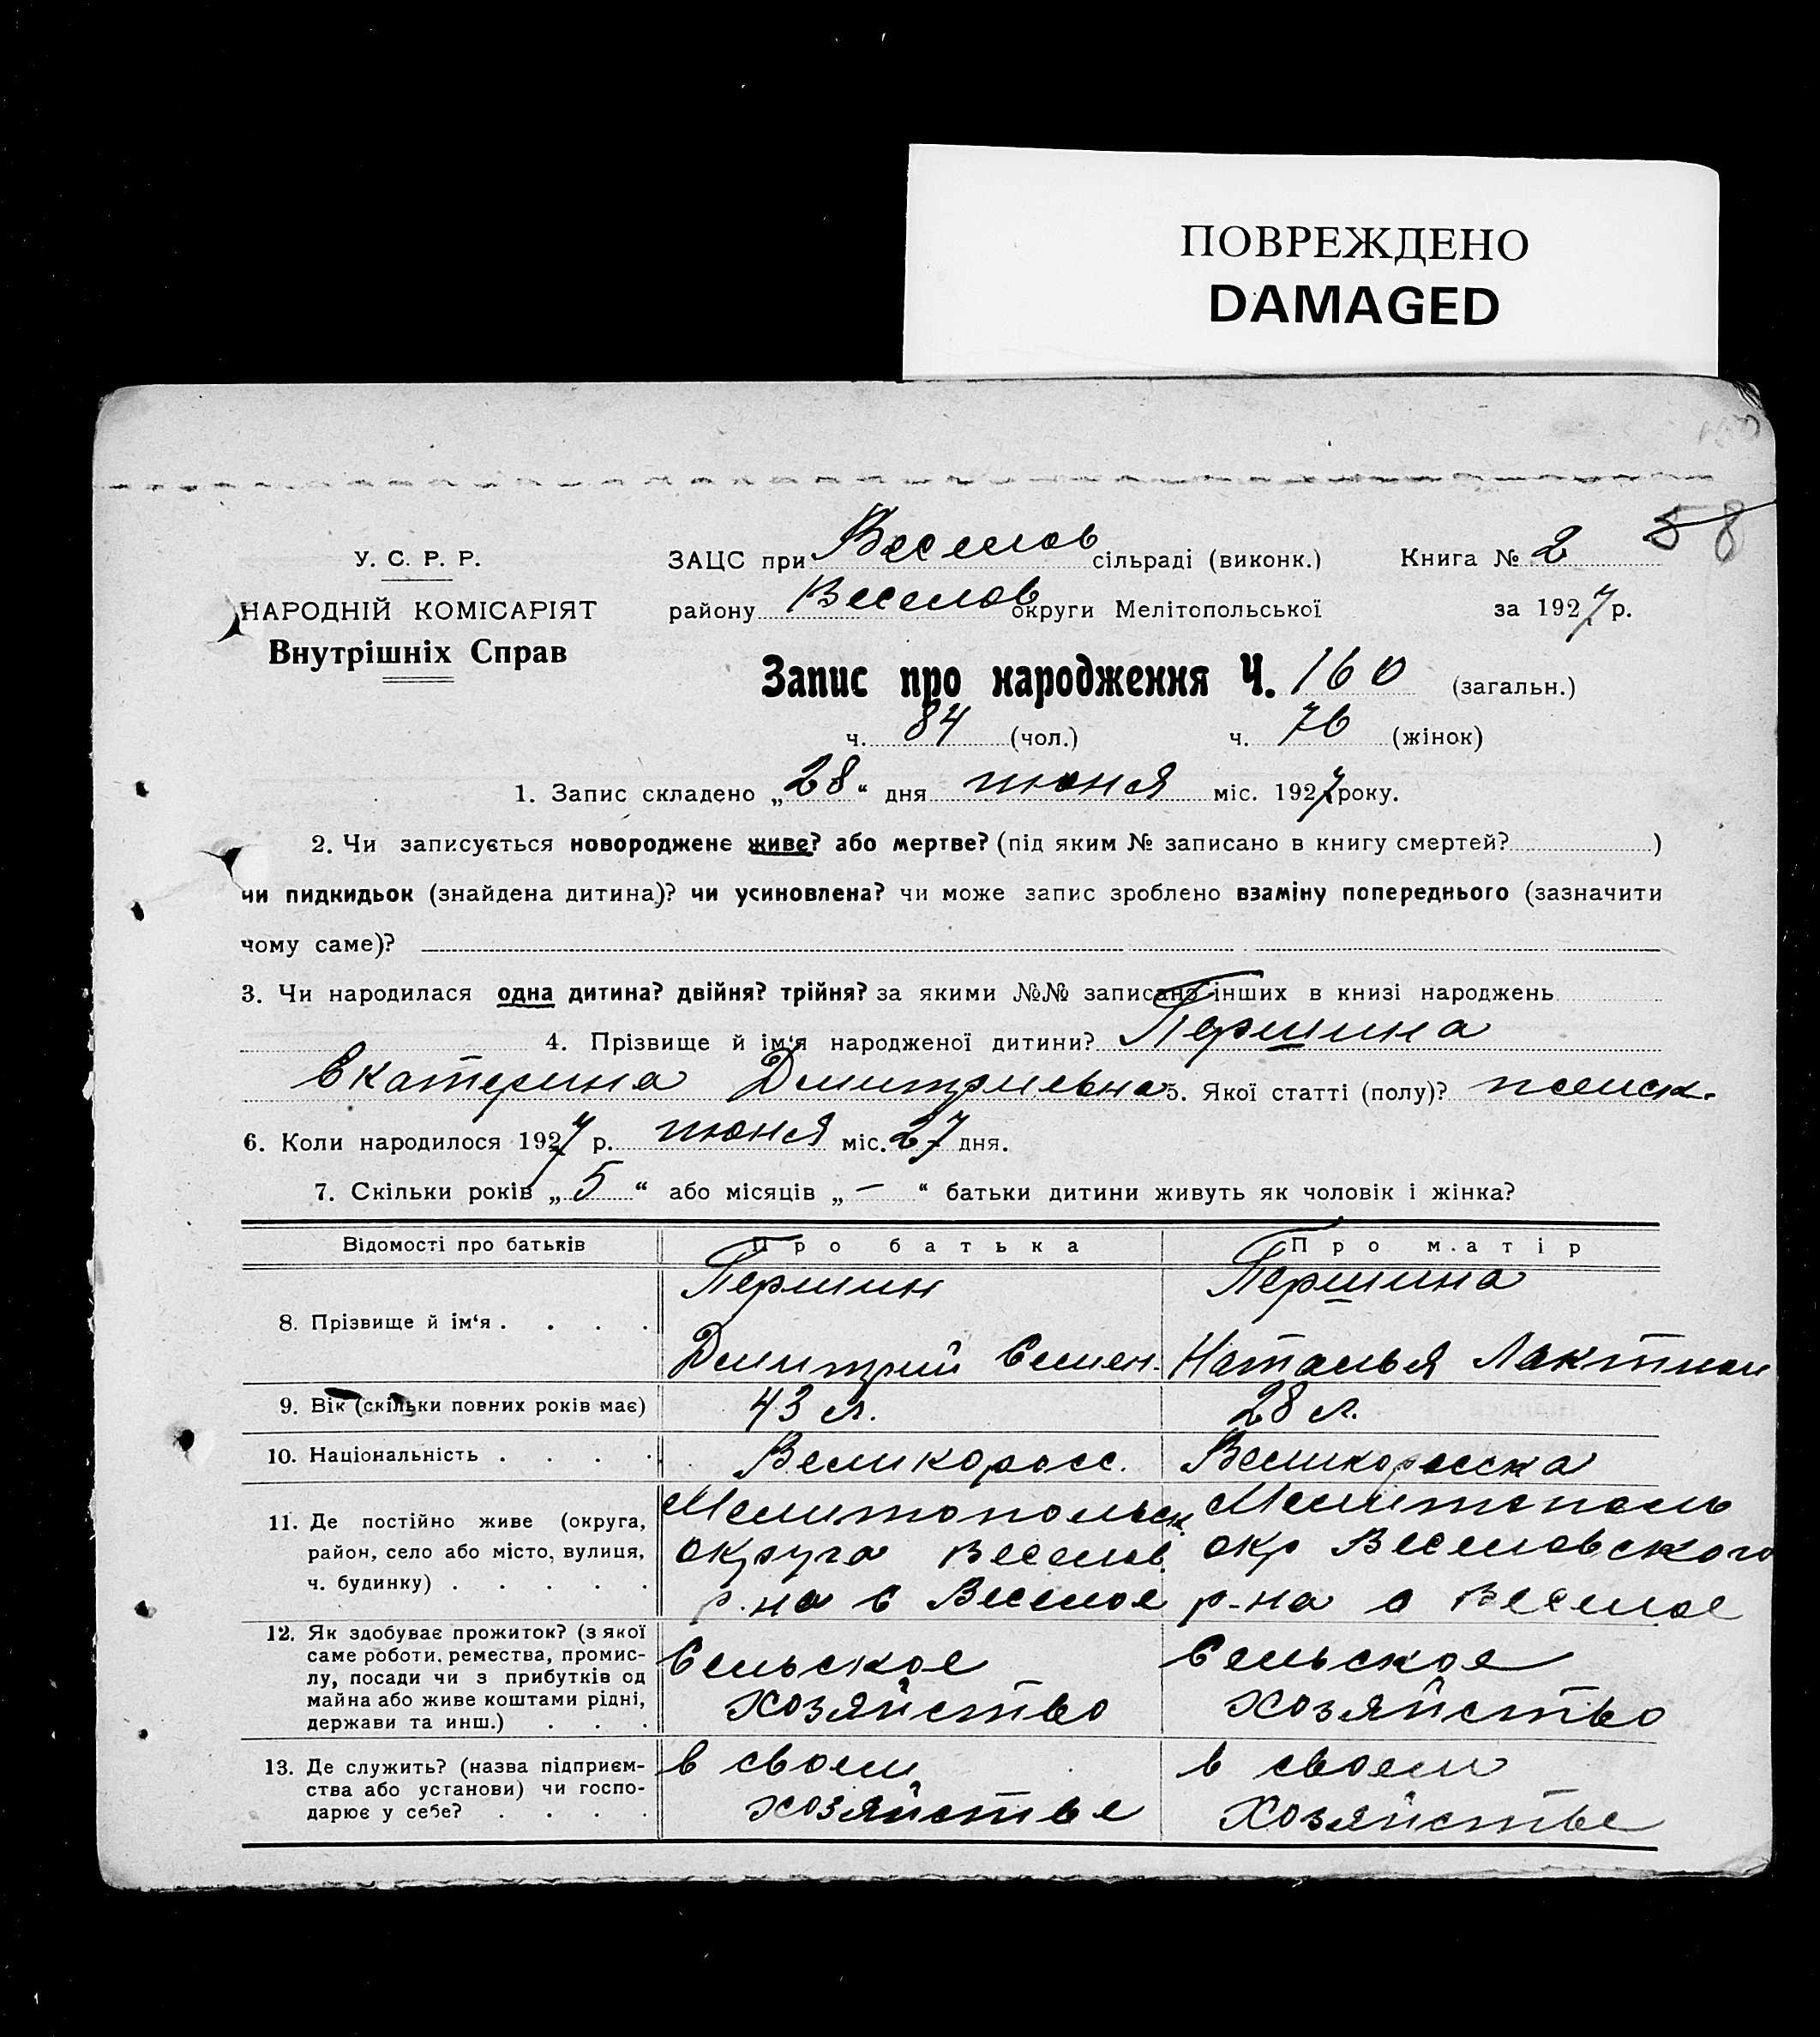 ПОВРЕЖДЕНО
DAMAGED
58
У. С. Р. Р.
НАРОДНІЙ КОМІСАРІЯТ
Внутрішніх Справ
ЗАЦС при Веселов сільраді (виконк.) Книга № 2
району Веселов округи Мелітопольської за 1927 р.
Запис про народження Ч. 160 (загальн.)
ч. 84 (чол.) ч. 76 (жінок)
1. Запис складено „28“ дня июня міс. 1927 року.
2. Чи записується новороджене живе? або мертве? (під яким № записано в книгу смертей? )
чи пидкидьок (знайдена дитина)? чи усиновлена? чи може запис зроблено взаміну попереднього (зазначити
чому саме)?
3. Чи народилася одна дитина? двійня? трійня? за якими №№ записано інших в книзі народжень
4. Прізвище й ім‘я народженої дитини? Першина
Екатерина Дмитриевна 5. Якої статті (полу)? женск.
6. Коли народилося 1927 р. июня міс. 27 дня.
7. Скільки років „5“ або місяців „—“ батьки дитини живуть як чоловік і жінка?
Відомості про батьків Про батька Про матір
8. Прізвище й ім‘я . . . . Першин Першина
Дмитрий Семен. Наталья
9. Вік (скільки повних років має) 43 л. 28 л.
10. Національність . . . . Великоросс. Великоросска
11. Де постійно живе (округа, Мелитопольск. Мелитополь
район, село або місто, вулиця, округа Веселов. окр Веселовского
ч. будинку) . . . . . р-на с Веселое р-на с Веселое
12. Як здобуває прожиток? (з якої
саме роботи, ремества, промис-
лу, посади чи з прибутків од
майна або живе коштами рідні,
держави та инш.) . . .
Сельское Сельское
хозяйство хозяйство
13. Де служить? (назва підприєм-
ства або установи) чи госпо-
дарює у себе? . . . .
в своем в своем
хозяйстве хозяйстве